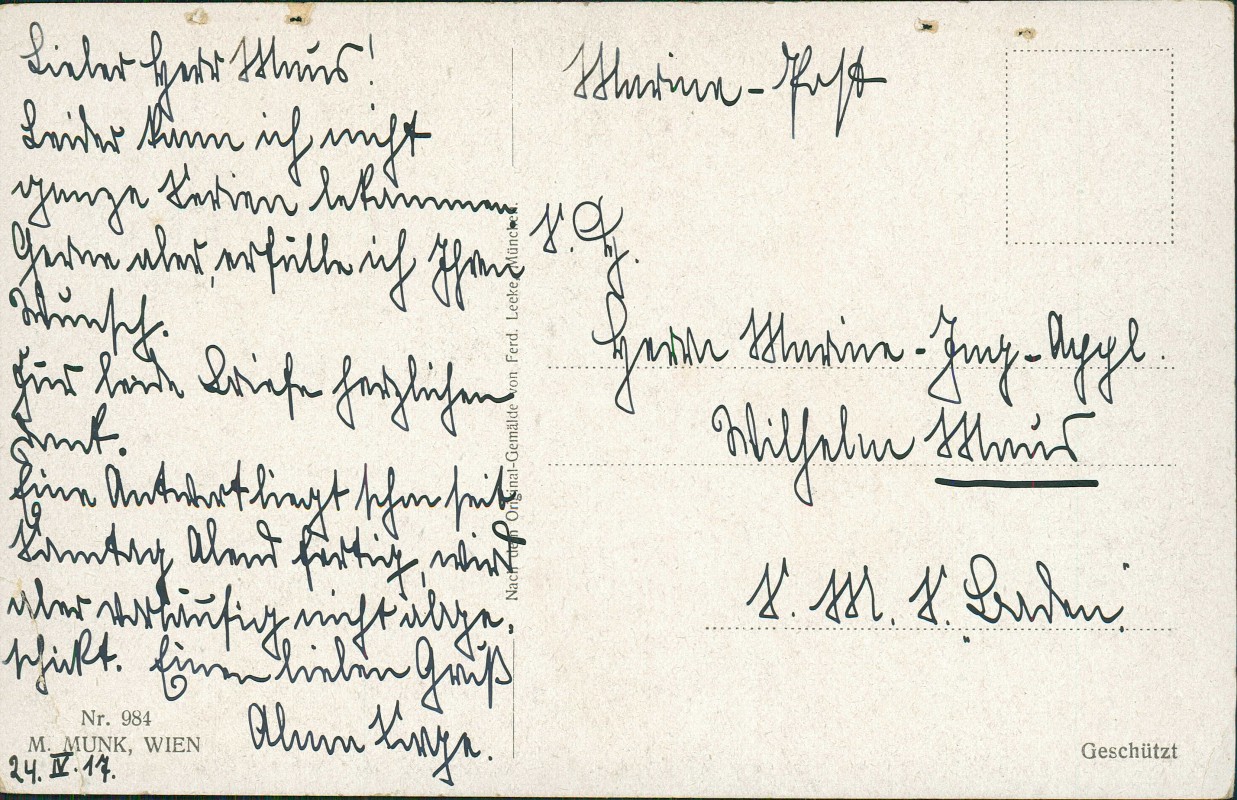 Lieber Herr Maus!
Leider kann ich nicht
ganze Serien bekommen.
Gerne aber, erfülle ich Ihren
Wunsch.
Für beide Briefe herzlichen
Dank.
Eine Antwort liegt schon seit
Samtag Abend fertig, wird
aber vorläufig nicht abge-
schickt. Einen lieben Gruß
Alma
24. IV. 17.
Nr. 984
M. MUNK, WIEN
Nach dem Original-Gemälde von Ferd. Leeke, München.
Marine-Post
Herrn Marine-Ing-Appl.
Wilhelm Maus
S. M. S. „Baden“
Geschützt